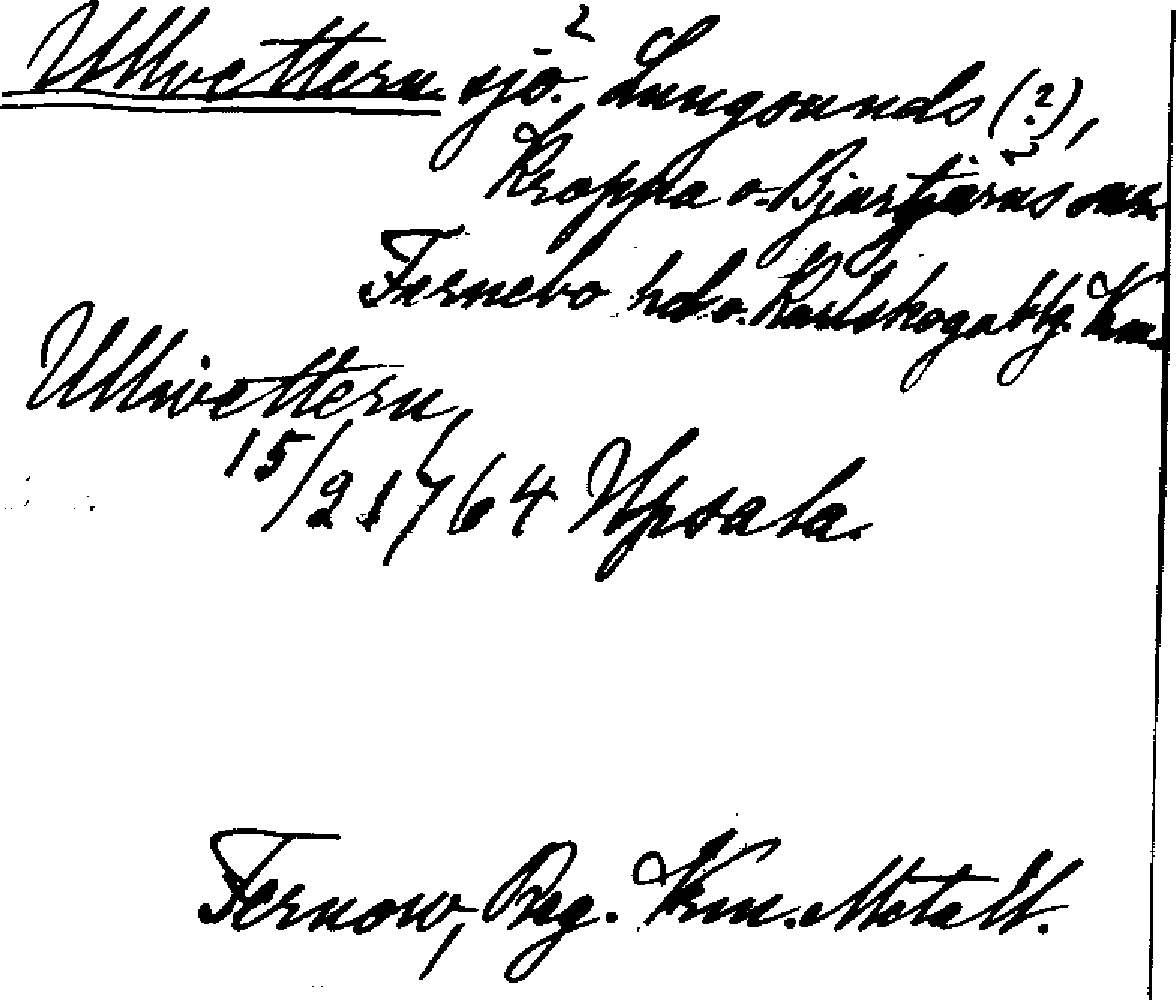 Ullvettern sjö. 2 Lungsunds (?),
Kroppa o. Bjurtjärns snr 2
Fernebo hd o. Karlskoga blg. Krm.
Ullwettern,
15/2 1764 Upsala.
Fernow, Beg. Krm. Metall.